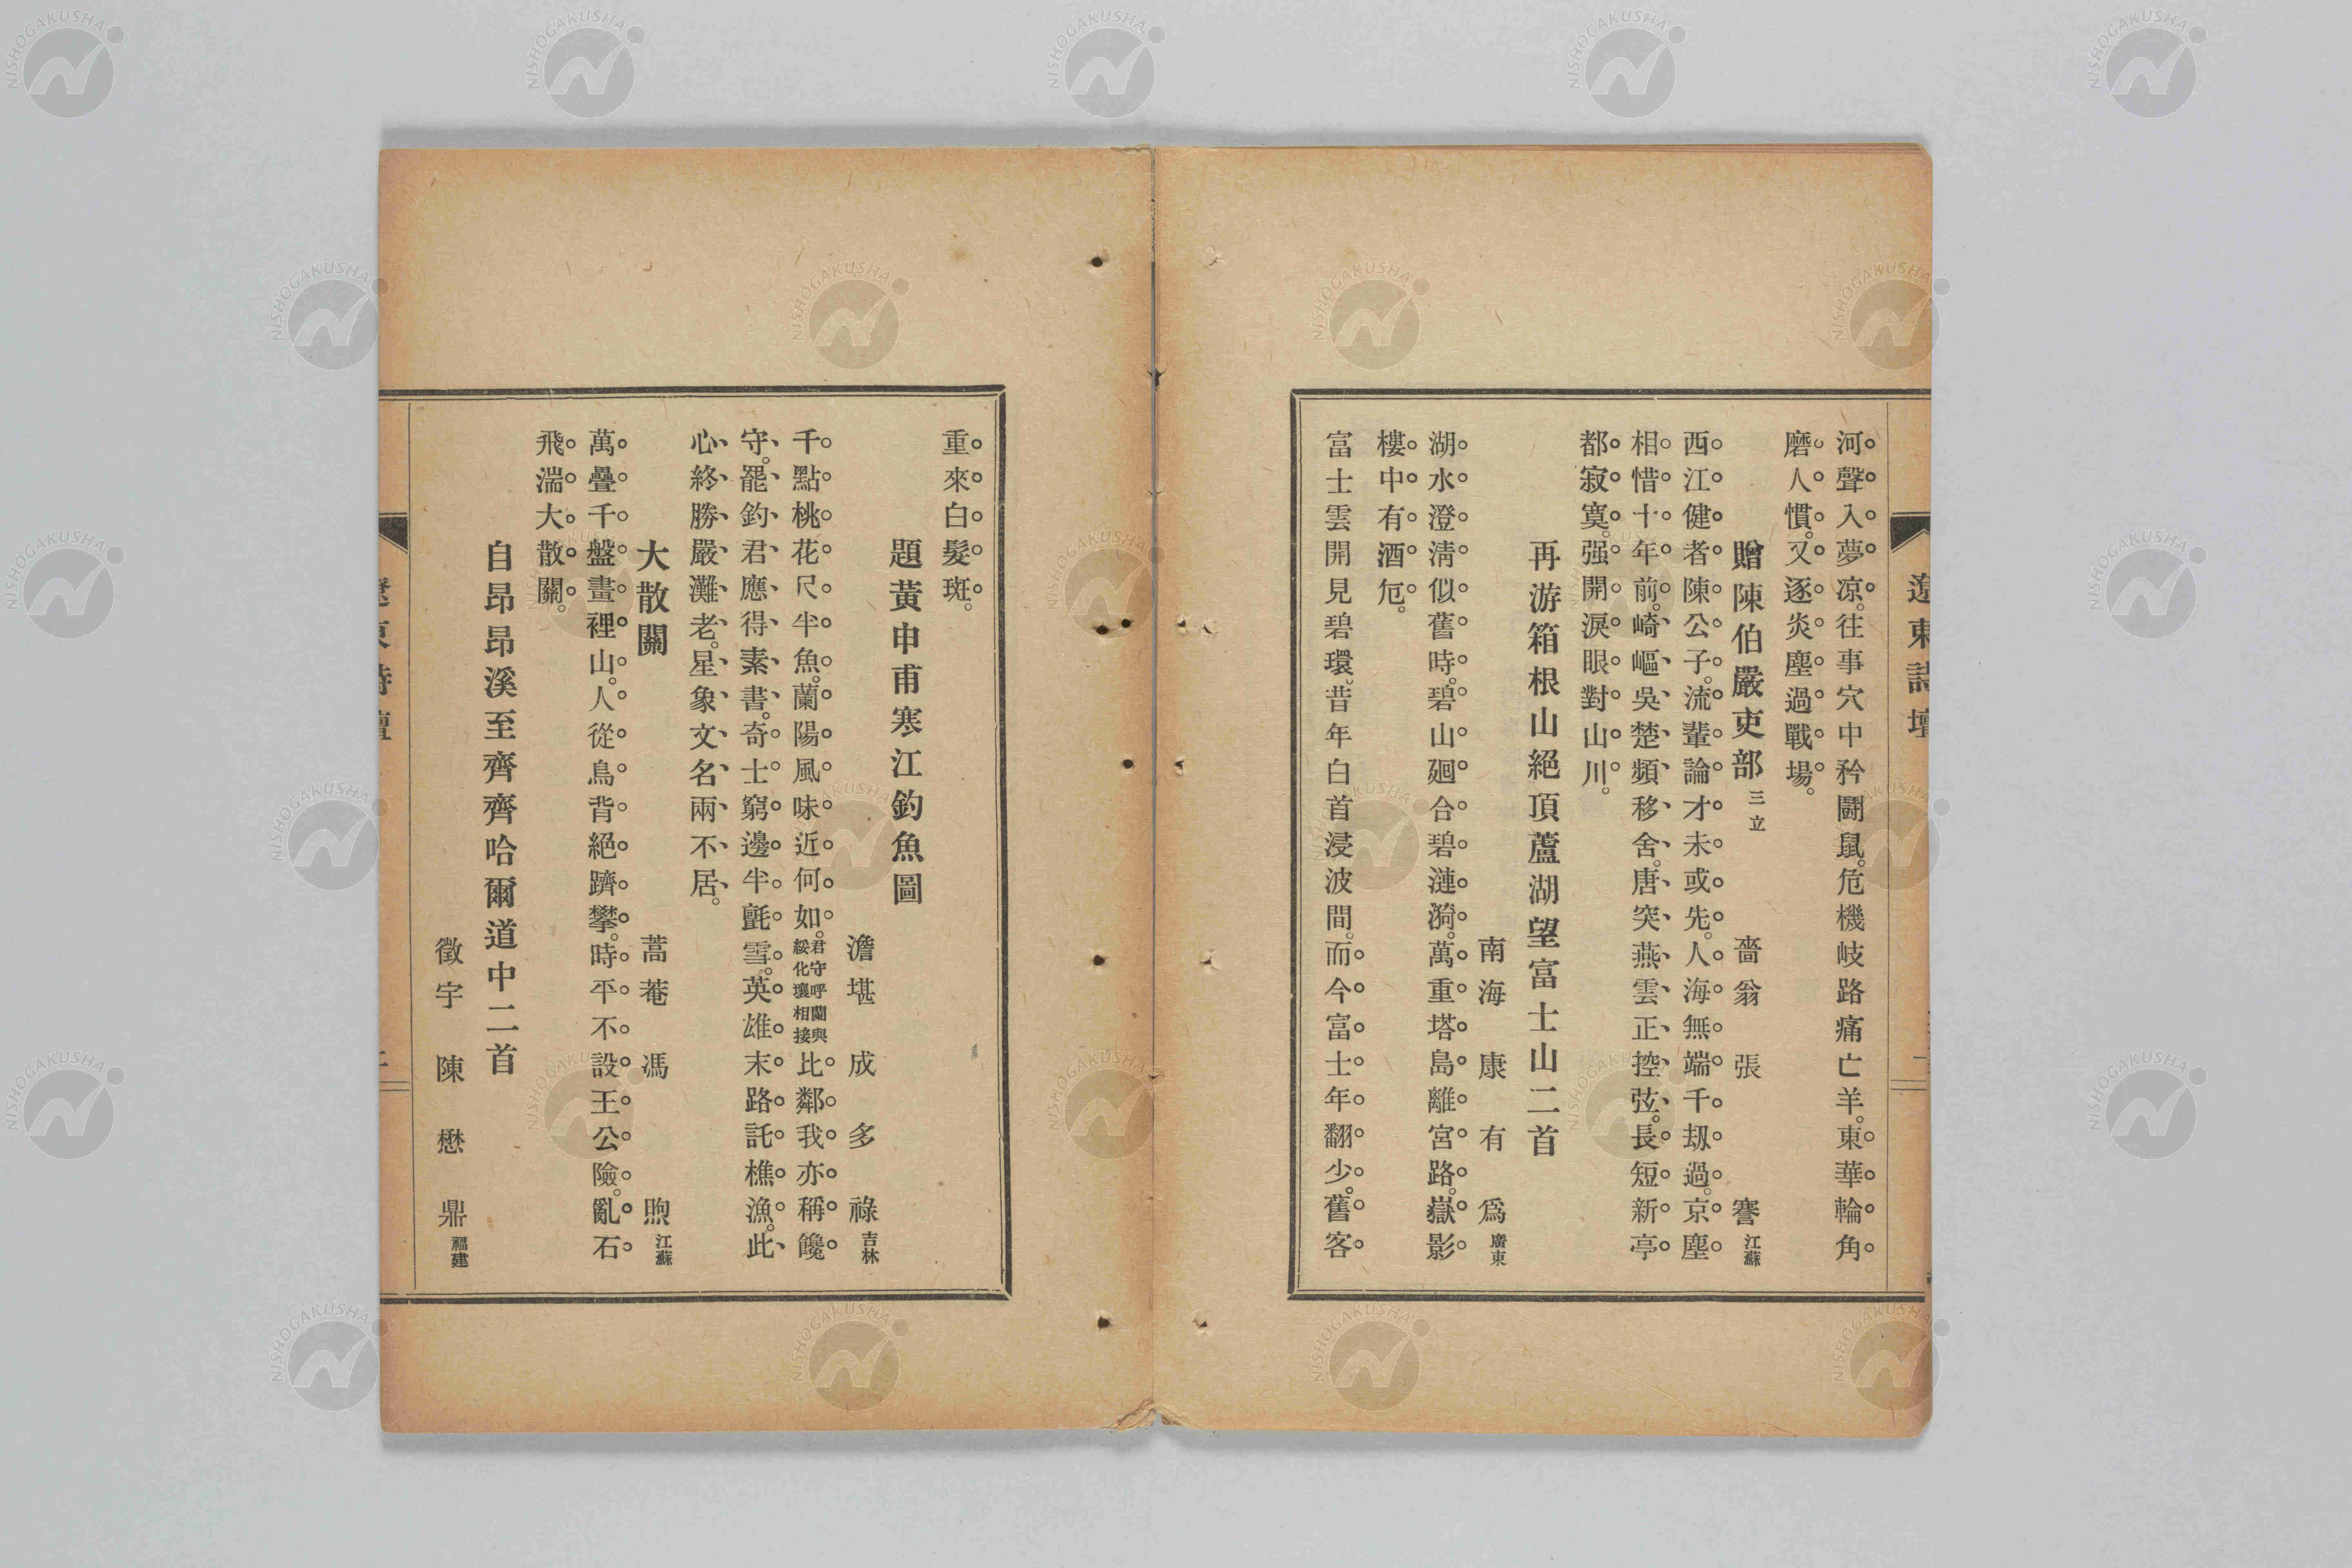 遼東詩壇
河聲入夢凉。往事穴中矜鬪鼠。危機岐路痛亡羊。東華輪角
磨人慣。又逐炎塵過戰場。
贈陳伯嚴吏部三立
嗇翁 張謇江蘇
西江健者陳公子。流輩論才未或先。人海無端千刼過。京塵
相惜十年前。崎嶇吳楚頻移舍。唐突燕雲正控弦。長短新亭
都寂寞。强開淚眼對山川。
再游箱根山絕頂蘆湖望富士山二首
南海 康有爲廣東
湖水澄淸似舊時。碧山廻合碧漣漪。萬重塔島離宮路。嶽影
樓中有酒卮。
富士雲開見碧環。昔年白首浸波間。而今富士年翻少。舊客
重來白髮斑。
題黃申甫寒江釣魚圖
澹堪 成多祿吉林
千點桃花尺半魚。蘭陽風味近何如。君守呼蘭與綏化壤相接比鄰我亦稱饞
守。罷釣君應得素書。奇士窮邊半氈雪。英雄末路託樵漁。此
心終勝嚴灘老。星象文名兩不居。
大散關
蒿菴 馮煦江蘇
萬疊千盤畫裡山。人從鳥背絕躋攀。時平不設王公險。亂石
飛湍大散關。
自昂昂溪至齊齊哈爾道中二首
徵宇 陳懋鼎福建
遼東詩壇
NISHOGAKUSHA